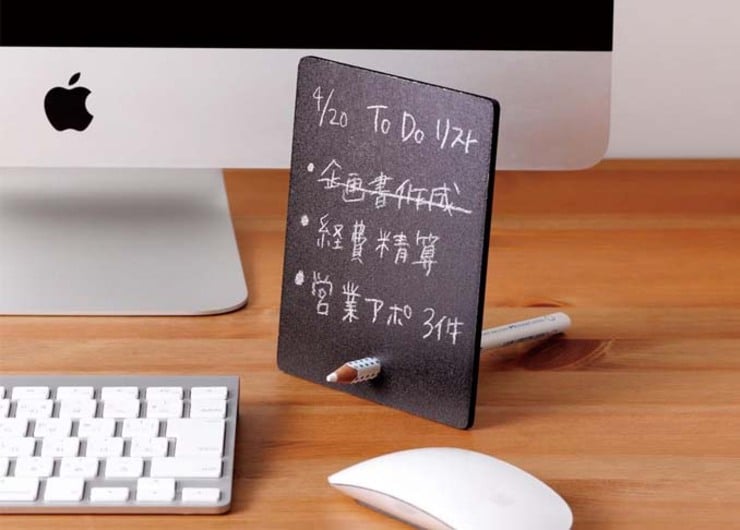 4/20 To Do リスト
• 企画書作成
• 経費精算
• 営業アポ 3件